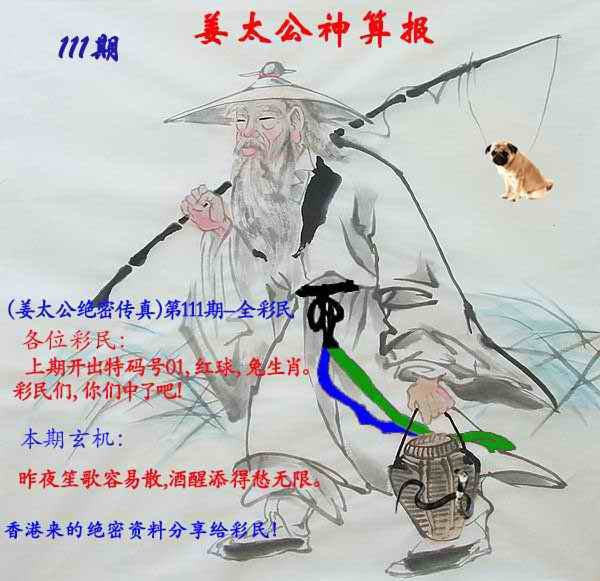 姜太公神算报
111期
(姜太公绝密传真)第111期--全彩民
各位彩民:
上期开出特码号01,红球,兔生肖。
彩民们,你们中了吧!
本期玄机:
昨夜笙歌容易散,酒醒添得愁无限。
香港来的绝密资料分享给彩民!